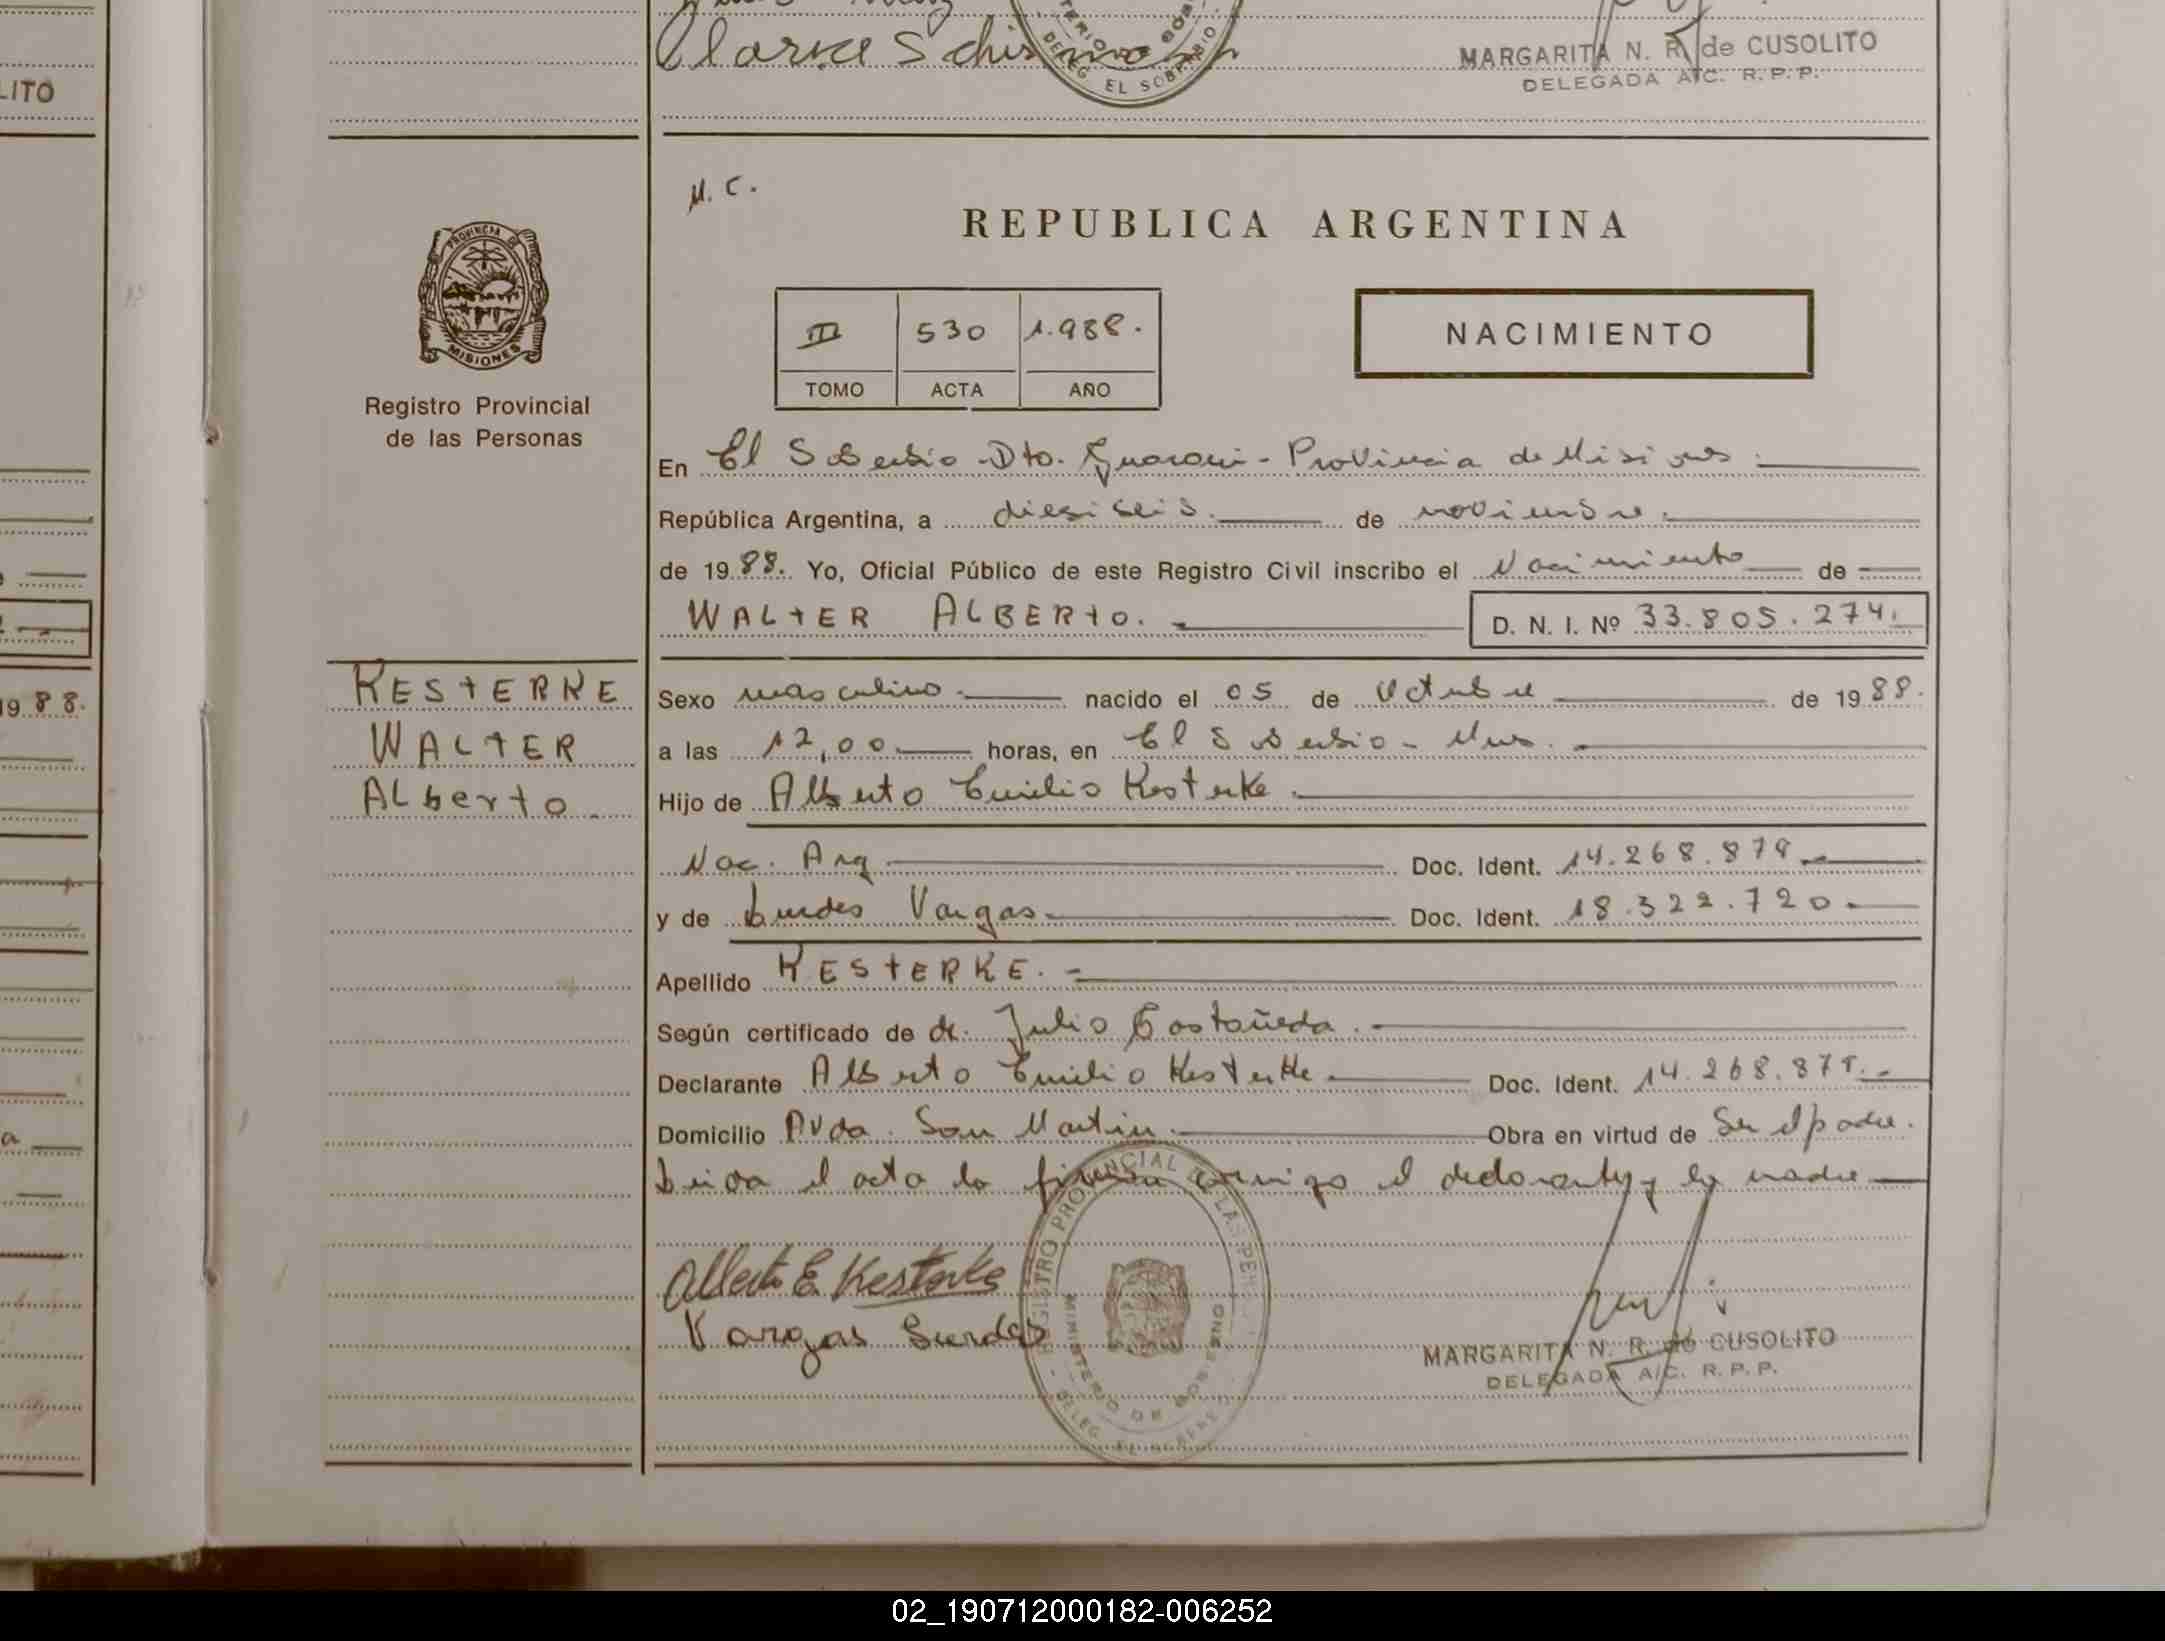 LITO
Clarice Schis
TERIO DE GOB
DELEG. EL SOBERBIO
MARGARITA N. R. de CUSOLITO
DELEGADA A/C. R. P. P.
M. C.
REPUBLICA ARGENTINA
PROVINCIA DE
MISIONES
III 530 1.988.
TOMO ACTA AÑO
NACIMIENTO
Registro Provincial
de las Personas
En El Soberbio - Dto. Guarani - Provincia de Misiones.
República Argentina, a dieciseis. de noviembre.
de 1988. Yo, Oficial Público de este Registro Civil inscribo el Nacimiento de
WALTER ALBERTO. D. N. I. Nº 33.805.274.
KESTERKE
WALTER
Alberto.
1988.
Sexo masculino. nacido el 05 de Octubre de 1988.
a las 12,00 horas, en El Soberbio - Mnes.
Hijo de Alberto Emilio Kesterke.
Nac. Arg. Doc. Ident. 14.268.879.
y de Lurdes Vargas Doc. Ident. 18.322.720.
Apellido KESTERKE.
Según certificado de dr. Julio Castañeda.
Declarante Alberto Emilio Kesterke Doc. Ident. 14.268.879.
Domicilio Avda. San Martin. Obra en virtud de Ser el padre.
Leida el acta la firman conmigo el declarante y la madre
Alberto E. Kesterke
Vargas Lurdes
REGISTRO PROVINCIAL DE LAS PER
MINISTERIO DE GOBIERNO
DELEG. EL SOBERBIO
MARGARITA N. R. de CUSOLITO
DELEGADA A/C. R. P. P.
02_190712000182-006252